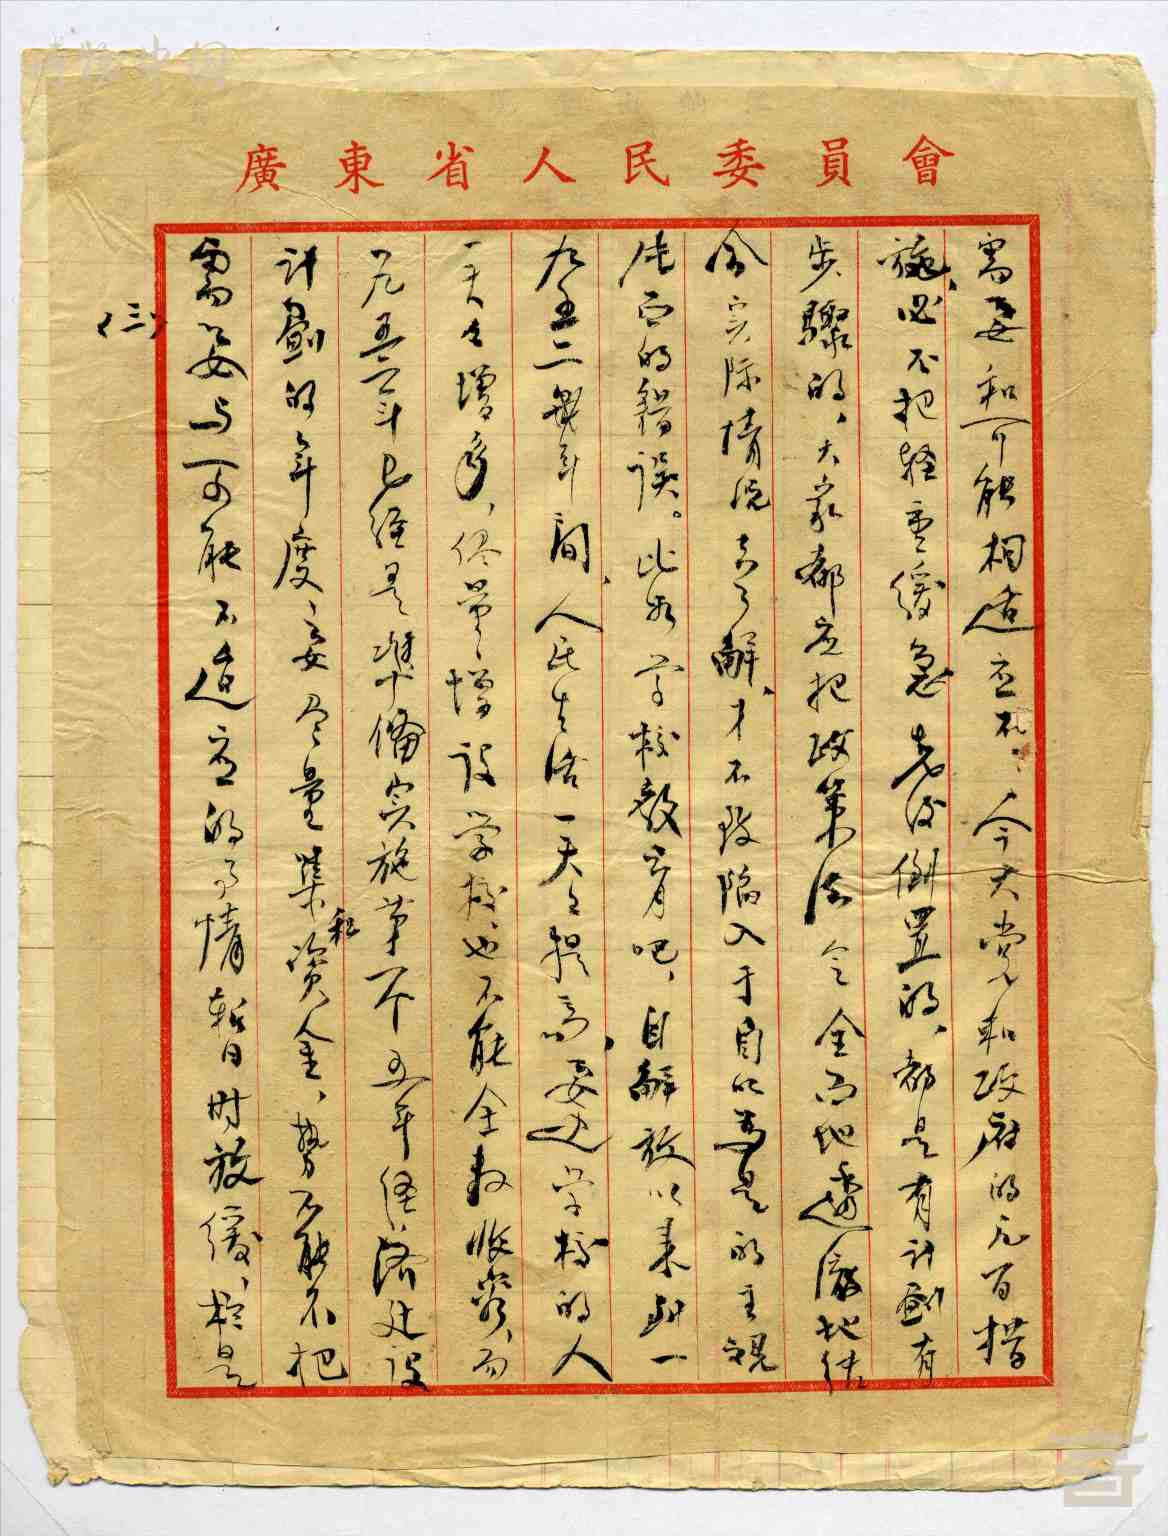 廣東省人民委員會
需要和可能相适应不？今天党和政府的凡百措
施，必不把轻重缓急先后倒置的，都是有计劃有
步驟的，大家都应把政策法令全面地透彻地结
合实际情况去了解，才不致陷入于自以为是的主观
片面的錯误。比如学校教育吧，自解放以来到一
九五二年间，人民生活一天天提高，要进学校的人
一天天增多，尽量增设学校，也不能全数收容，而
一九五三年已经是準俻实施第一个五年经济建设
计劃的年度，要尽量集资金，势不能不把
需要与可能不适应的事情暂时放缓，於是
（三）